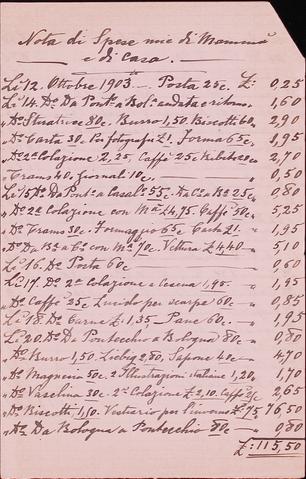 Nota di Spese mie di Mammà
e di casa.
Li 12. Ottobre 1903. Posta 25c. £: 0,25
Li 14. Do. Da Pont.o a Bol.a andata e ritorno. 1,60
" Do. 80c. Burro 1,50. Biscotti 60c. 2,90
" Do. Carta 30c. fotografie £1. Forma 65c. 1,95
" Do. 2a Colazione 2,25. Caffè 25c. 20c. 2,70
" Trams 40. Giornal 10c. 0,50
Li 15. Do. da Pont.o a Casal.o 55c. a B.a 25c. 0,80
" Do. 2a Colazione con M.a £4,75. Caffè 50c. 5,25
" Do. Trams 30c. Formaggio 65c. Carta £1. 1,95
" Do. Da B.a a C.o con M.a 70c. Vettura £4,40 5,10
Li 16. Do. Posta 60c. 0,60
Li 17. Do. 2a Colazione a Cesena 1,95. 1,95
" Do. Caffè 25c. Lucido per scarpe 60c. 0,85
Li 18. Do. Carne £.1,35. Pane 60c. 1,95
Li 20. Do. Da Pontecchio a Bologna 80c. 0,80
" Do. Burro 1,50. Liebig 2,80. Sapone 40c. 4,70
" Do. Magnesia 50c. 2 Illustrazioni italiane 1,20. 1,70
" Do. Vaselina 30c. 2a Colazione £2,10. Caffè 25c. 2,65
" Do. Biscotti, 1,50. Vestiario per £75, 76,50
" Do. Da Bologna a Pontecchio 80c. 0,80
£:115,50